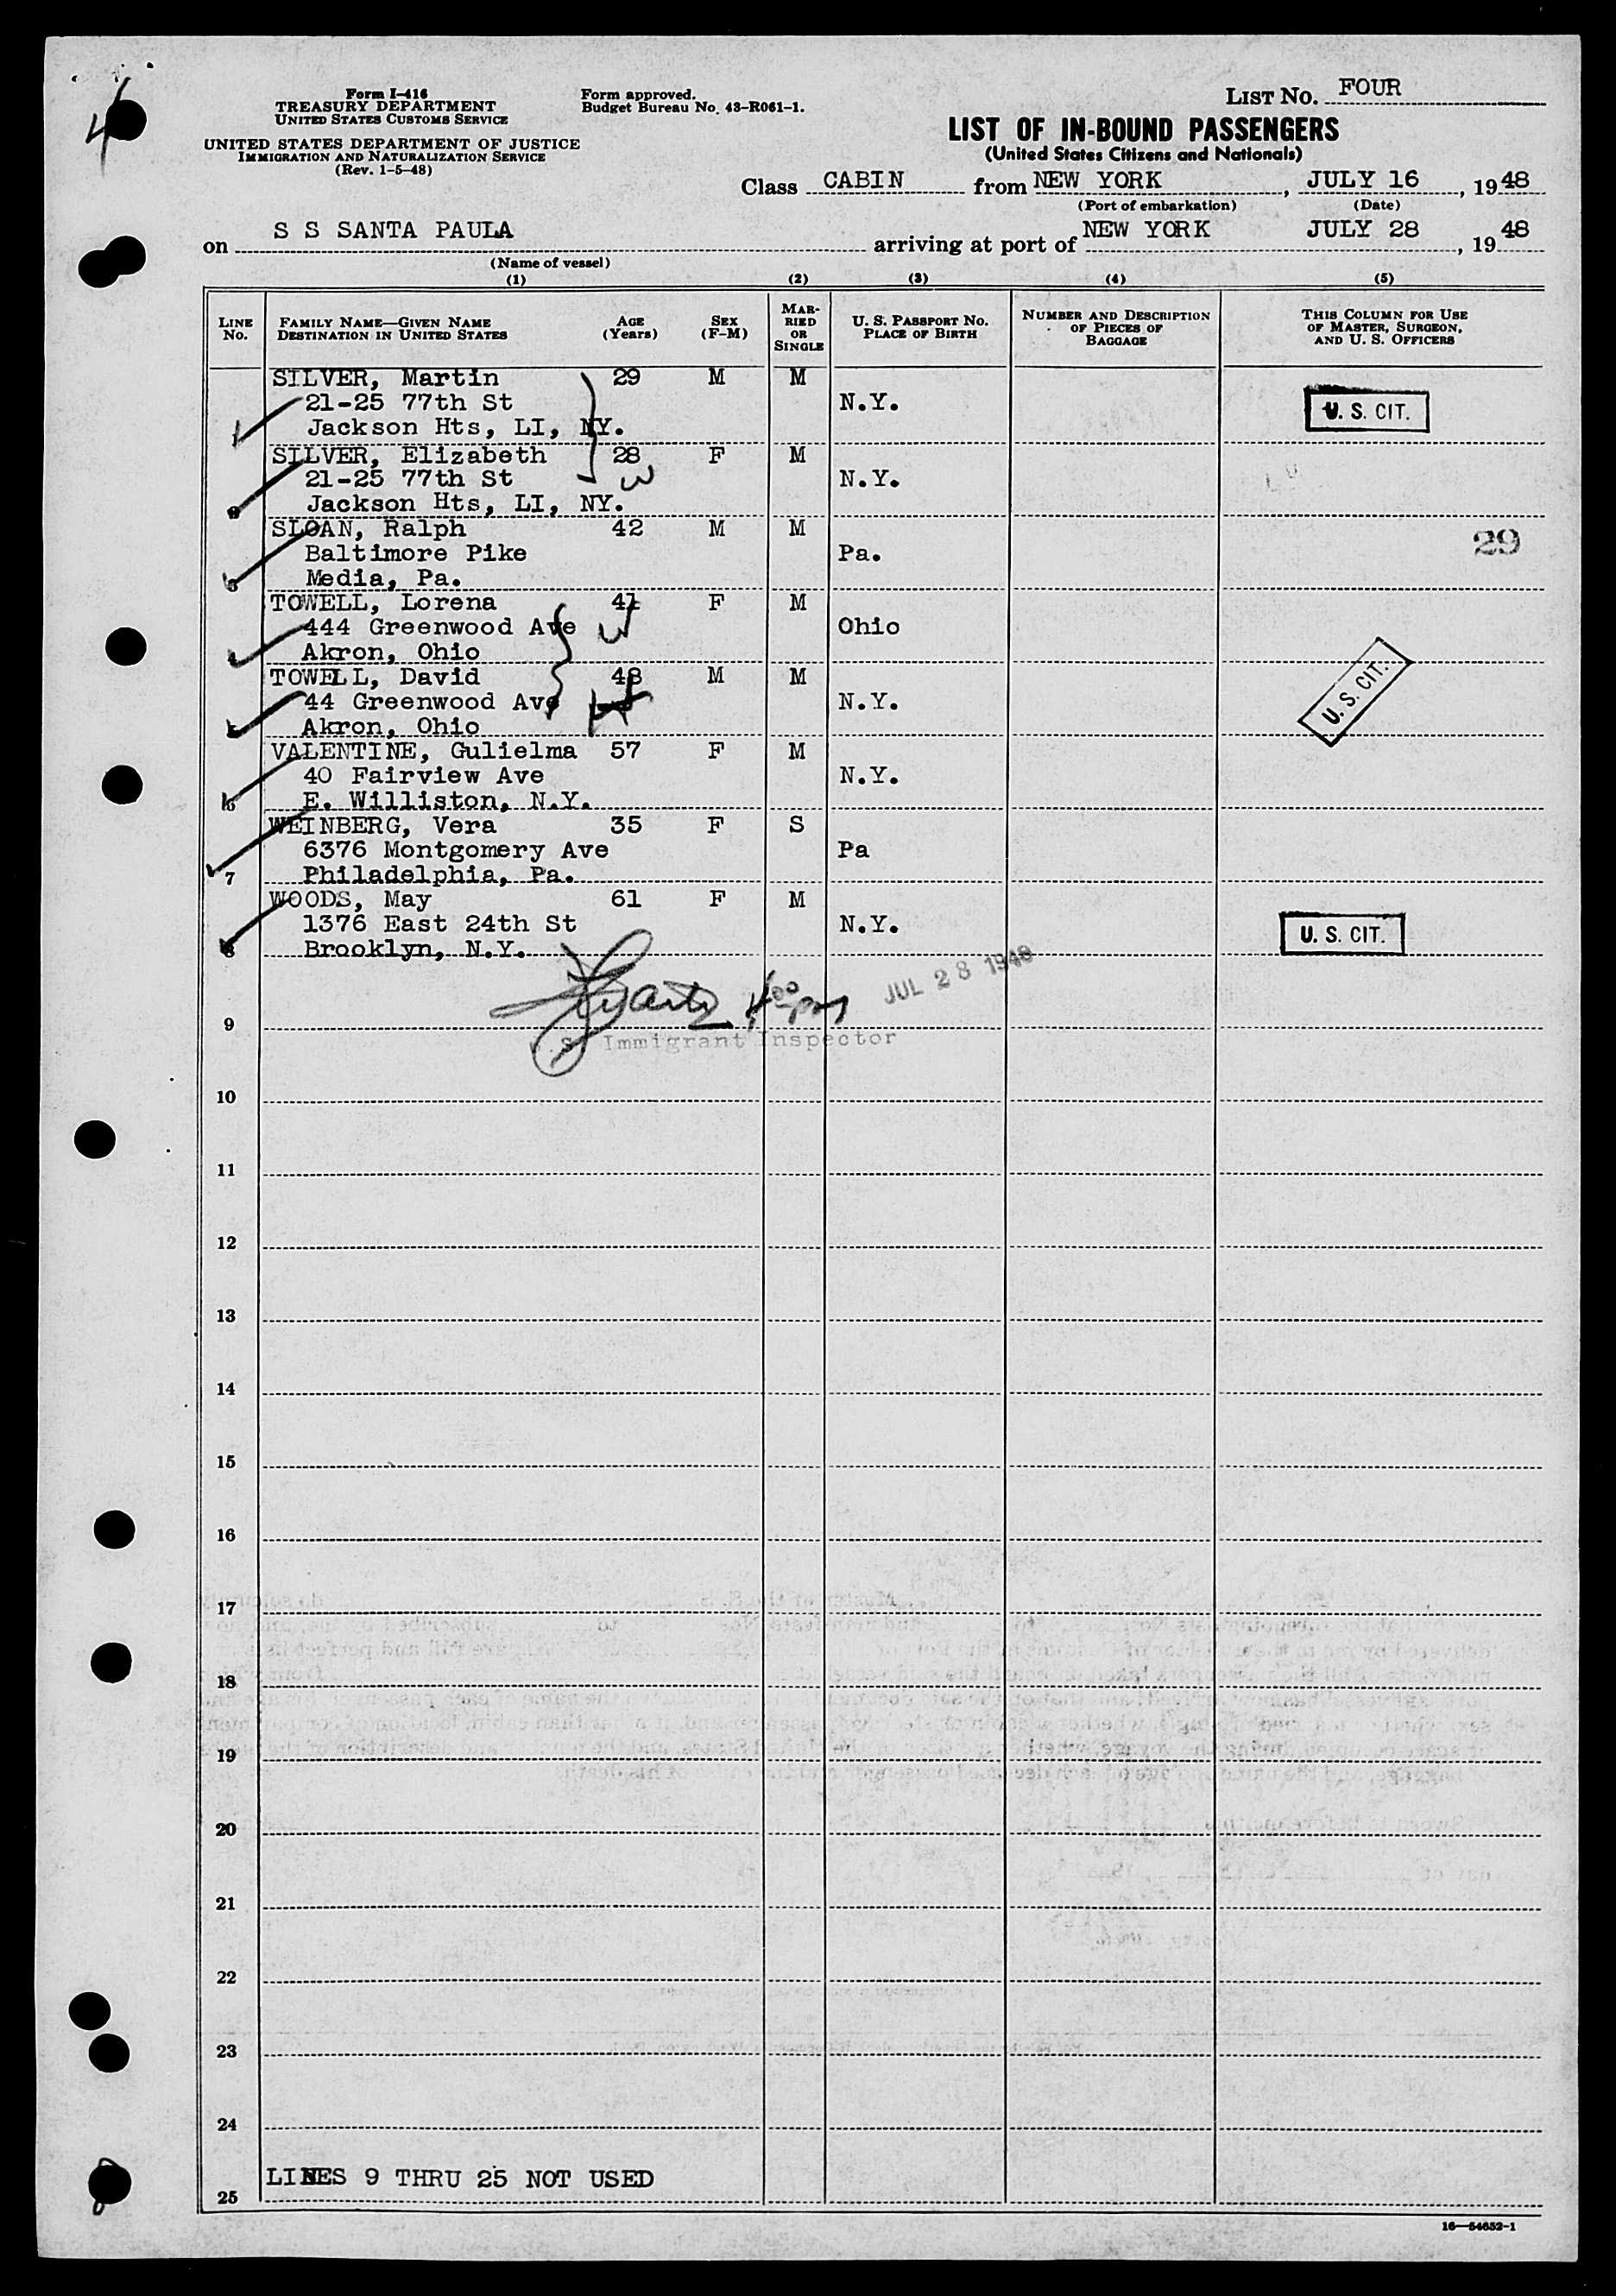 4
Form I-416
TREASURY DEPARTMENT
UNITED STATES CUSTOMS SERVICE
UNITED STATES DEPARTMENT OF JUSTICE
IMMIGRATION AND NATURALIZATION SERVICE
(Rev. 1-5-48)
Form approved.
Budget Bureau No. 43-R061-1.
LIST NO. FOUR
LIST OF IN-BOUND PASSENGERS
(United States Citizens and Nationals)
Class CABIN from NEW YORK, JULY 16, 1948
(Port of embarkation) (Date)
on S S SANTA PAULA arriving at port of NEW YORK JULY 28, 1948
(Name of vessel)
(1) (2) (3) (4) (5)
LINE NO. FAMILY NAME—GIVEN NAME DESTINATION IN UNITED STATES AGE (Years) SEX (F-M) MARRIED OR SINGLE U. S. PASSPORT NO. PLACE OF BIRTH NUMBER AND DESCRIPTION OF PIECES OF BAGGAGE THIS COLUMN FOR USE OF MASTER, SURGEON, AND U. S. OFFICERS
SILVER, Martin 29 M M
21-25 77th St N.Y. U. S. CIT.
1 Jackson Hts, LI, NY.
SILVER, Elizabeth 28 F M
21-25 77th St N.Y.
2 Jackson Hts, LI, NY.
SLOAN, Ralph 42 M M 29
Baltimore Pike Pa.
3 Media, Pa.
TOWELL, Lorena 41 F M
444 Greenwood Ave Ohio
4 Akron, Ohio
TOWELL, David 48 M M
44 Greenwood Ave N.Y. U. S. CIT.
5 Akron, Ohio
VALENTINE, Gulielma 57 F M
40 Fairview Ave N.Y.
6 E. Williston, N.Y.
WEINBERG, Vera 35 F S
6376 Montgomery Ave Pa
7 Philadelphia, Pa.
WOODS, May 61 F M
1376 East 24th St N.Y. U. S. CIT.
8 Brooklyn, N.Y.
4 00 pm JUL 28 1948
9
S. Immigrant Inspector
10
11
12
13
14
15
16
17
18
19
20
21
22
23
24
LINES 9 THRU 25 NOT USED
25
16—54652-1